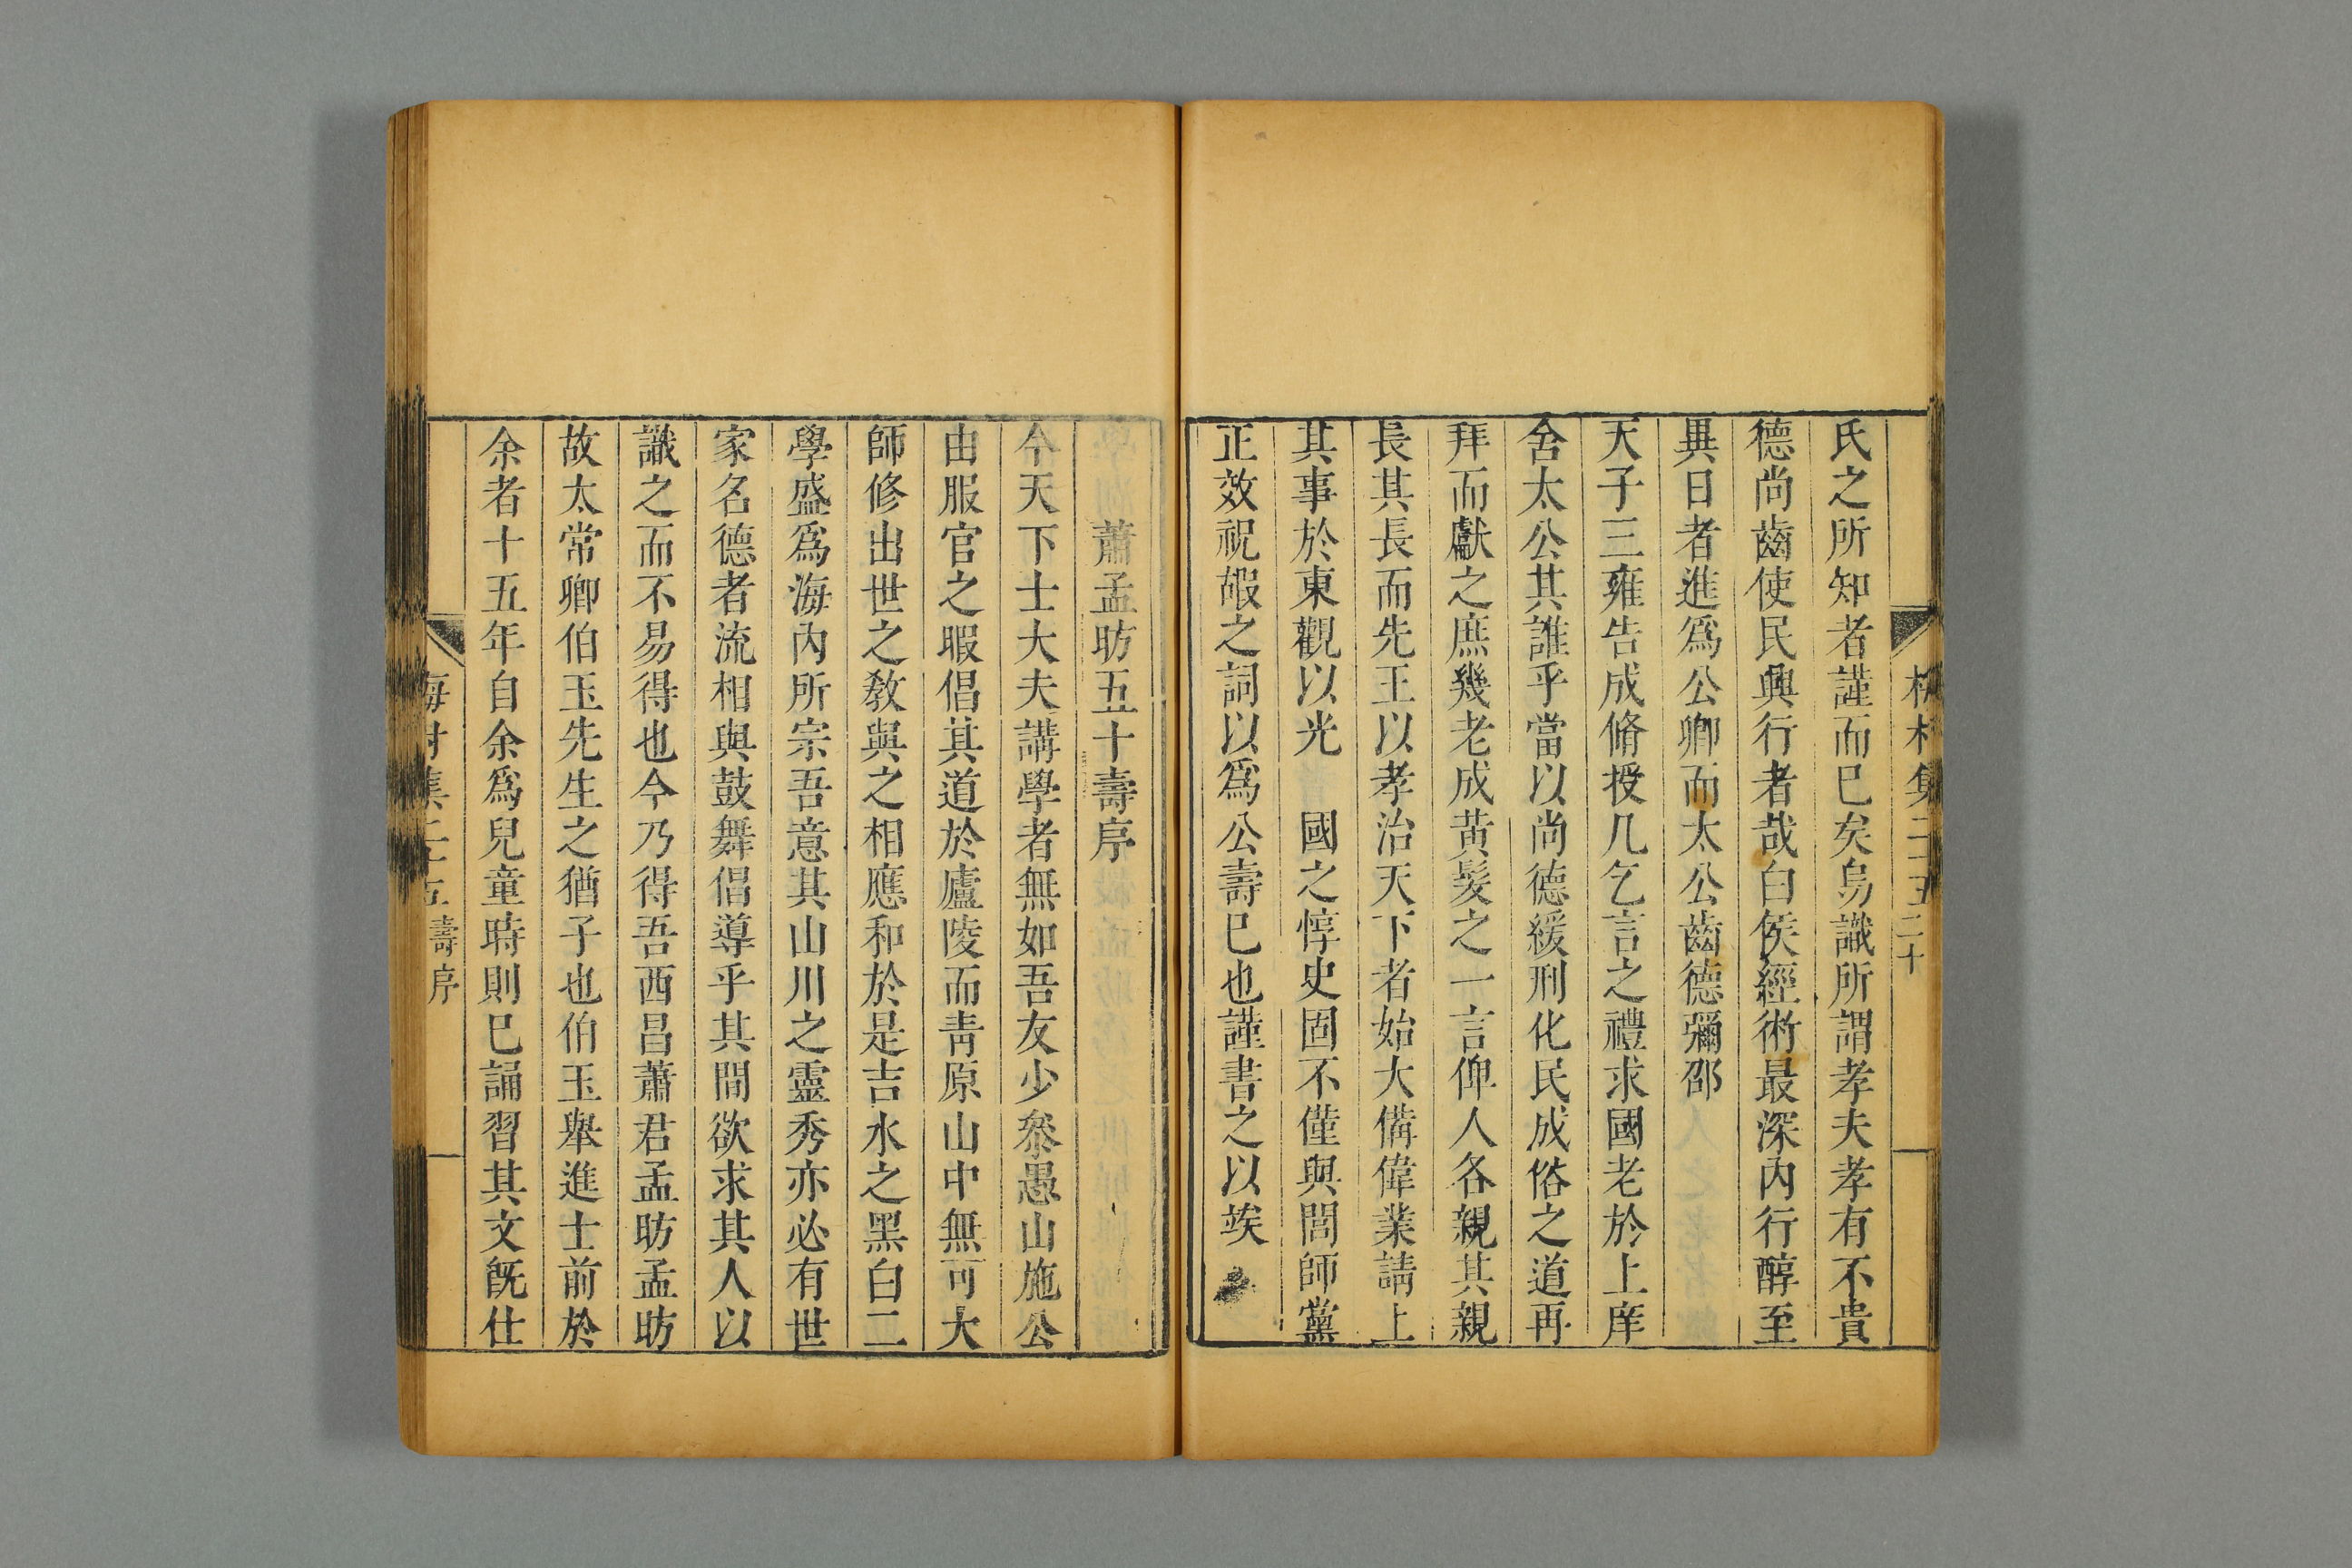 氏之所知者謹而已矣烏識所謂孝夫孝有不貴
德尚齒使民興行者哉白侯經術最深內行醇至
異日者進爲公卿而太公齒德彌邵
天子三雍告成脩授几乞言之禮求國老於上庠
舍太公其誰乎當以尚德緩刑化民成俗之道再
拜而獻之庶幾老成黃髮之一言俾人各親其親
長其長而先王以孝治天下者始大備偉業請上
其事於東觀以光　國之惇史固不僅與閭師黨
正效祝嘏之詞以爲公壽已也謹書之以竢
蕭孟昉五十壽序
今天下士大夫講學者無如吾友少參愚山施公
由服官之暇倡其道於廬陵而靑原山中無可大
師修出世之敎與之相應和於是吉水之黑白二
學盛爲海內所宗吾意其山川之靈秀亦必有世
家名德者流相與鼓舞倡導乎其間欲求其人以
識之而不易得也今乃得吾西昌蕭君孟昉孟昉
故太常卿伯玉先生之猶子也伯玉舉進士前於
余者十五年自余爲兒童時則已誦習其文旣仕
梅村集二十五 壽序